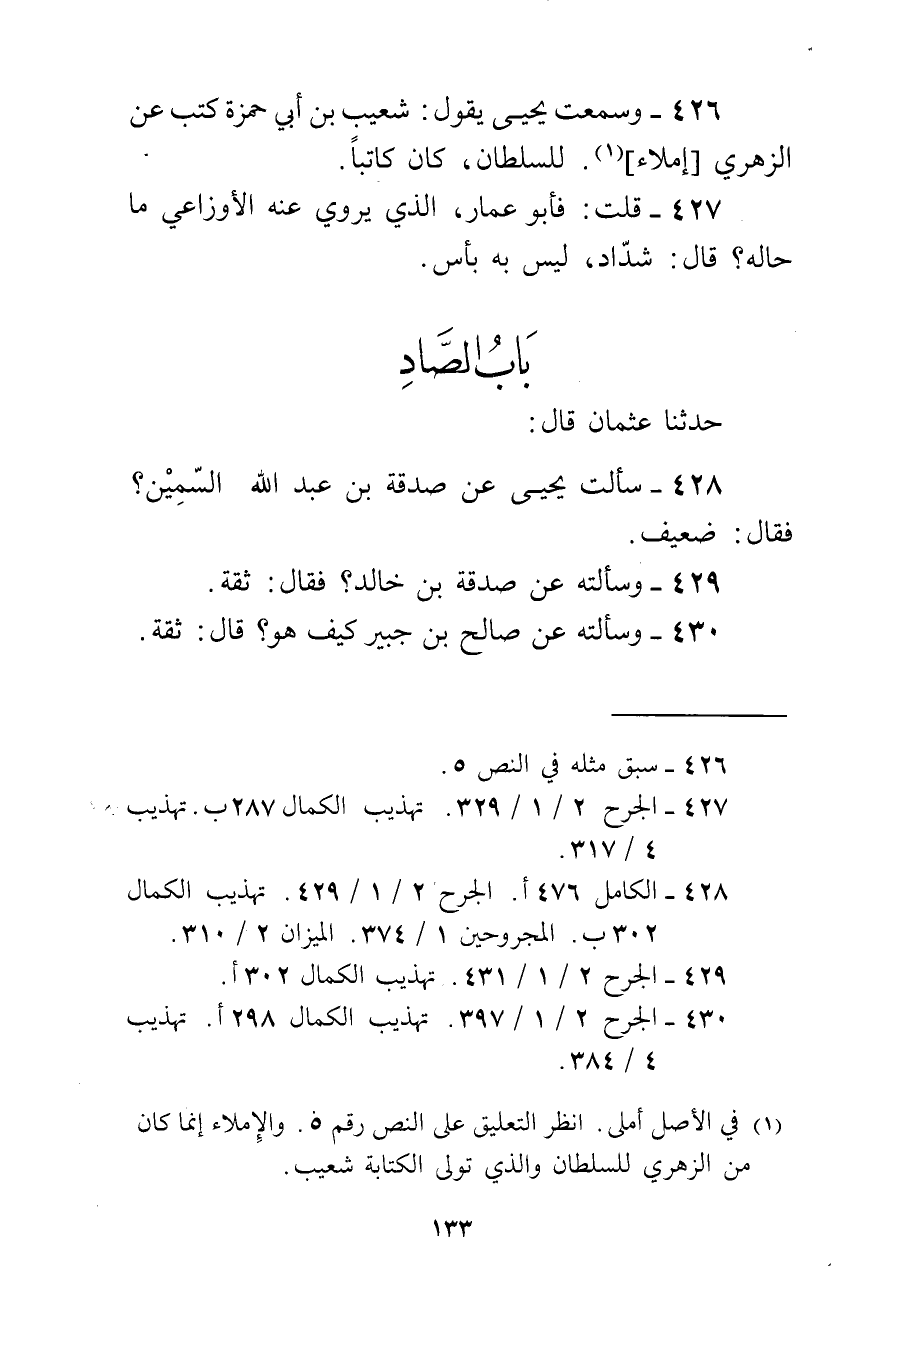 ٤٢٦ ـ وسمعت يحيـى يقول: شعيب بن أبي حمزة كتب عن
الزهري [إملاء](١). للسلطان، كان كاتباً.
٤٢٧ ـ قلت: فأبو عمار، الذي يروي عنه الأوزاعي ما
حاله؟ قال: شدّاد، ليس به بأس.
بَابُ الصَّادِ
حدثنا عثمان قال:
٤٢٨ ـ سألت يحيـى عن صدقة بن عبد الله السَّمِيْن؟
فقال: ضعيف.
٤٢٩ ـ وسألته عن صدقة بن خالد؟ فقال: ثقة.
٤٣٠ ـ وسألته عن صالح بن جبير كيف هو؟ قال: ثقة.
٤٢٦ ـ سبق مثله في النص ٥.
٤٢٧ ـ الجرح ٢ / ١ / ٣٢٩. تهذيب الكمال ٢٨٧ب. تهذيب
٤ / ٣١٧.
٤٢٨ ـ الكامل ٤٧٦ أ. الجرح ٢ / ١ / ٤٢٩. تهذيب الكمال
٣٠٢ ب. المجروحين ١ / ٣٧٤. الميزان ٢ / ٣١٠.
٤٢٩ ـ الجرح ٢ / ١ / ٤٣١. تهذيب الكمال ٣٠٢ أ.
٤٣٠ ـ الجرح ٢ / ١ / ٣٩٧. تهذيب الكمال ٢٩٨ أ. تهذيب
٤ / ٣٨٤.
(١) في الأصل أملى. انظر التعليق على النص رقم ٥. والإِملاء إنما كان
من الزهري للسلطان والذي تولى الكتابة شعيب.
١٣٣